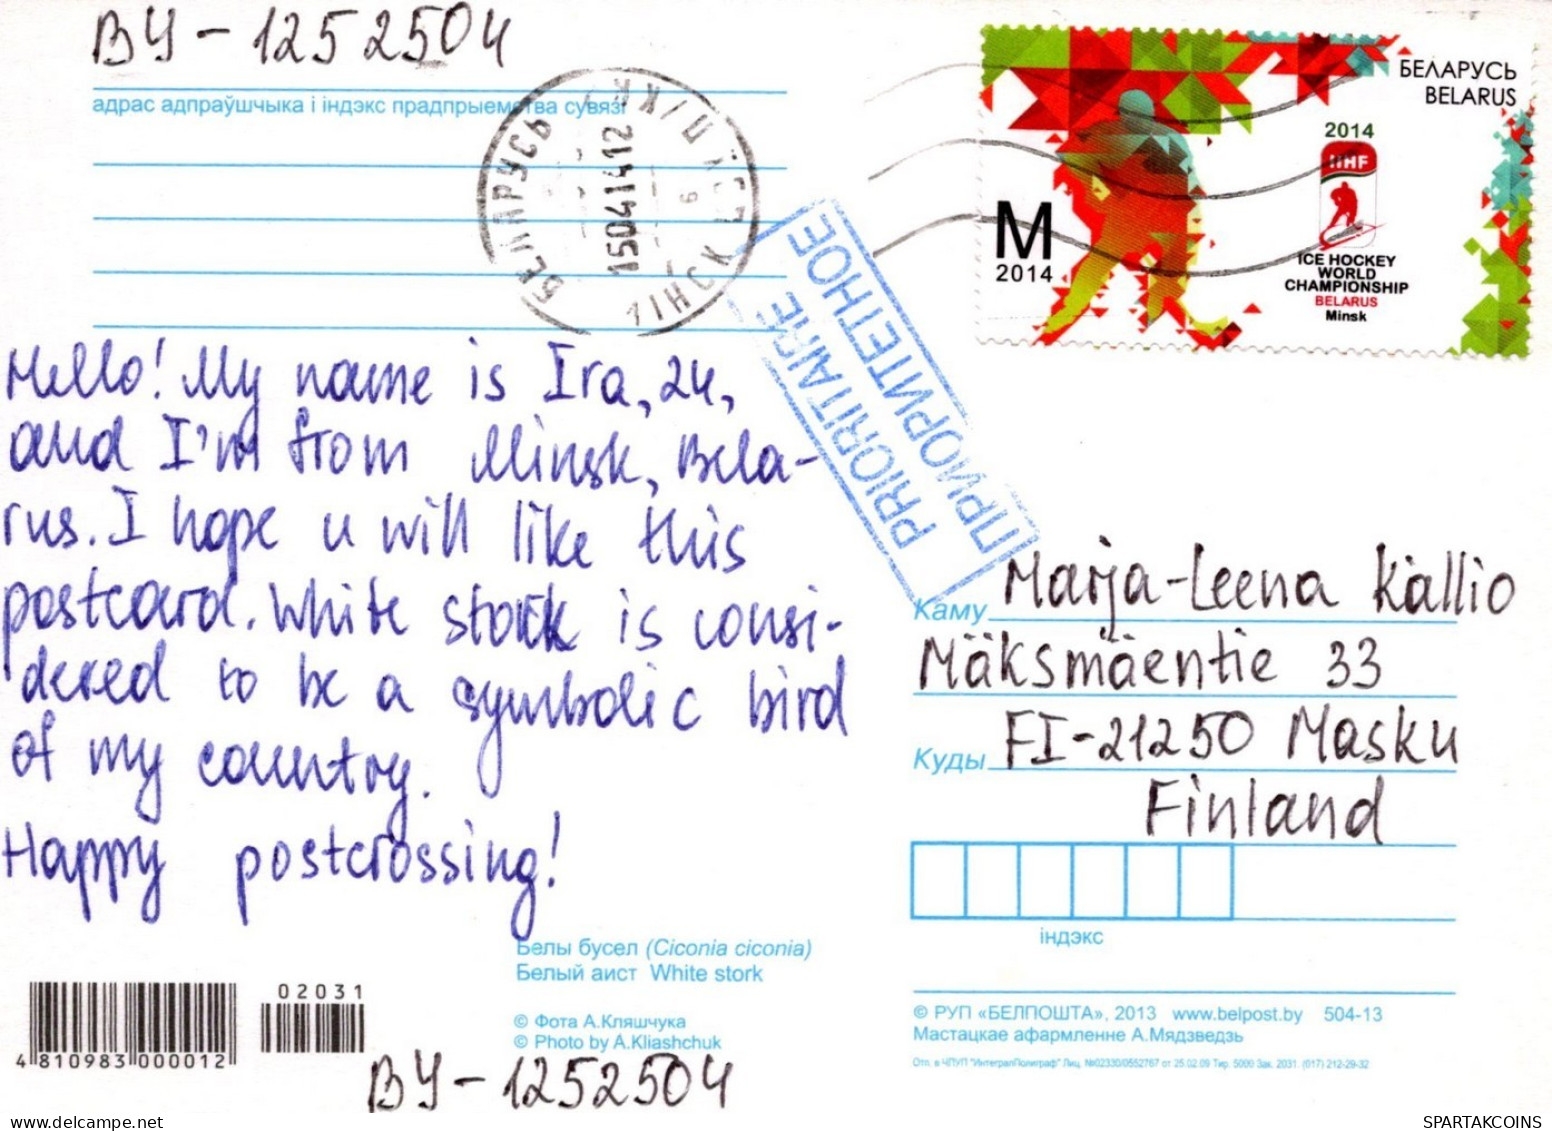 BY-1252504
адрас адпраўшчыка і індэкс прадпрыемства сувязі
БЕЛАРУСЬ
150414 12
МІНСК
БЕЛАРУСЬ
BELARUS
2014
IIHF
M
2014
ICE HOCKEY
WORLD
CHAMPIONSHIP
BELARUS
Minsk
PRIORITAIRE
ПРИОРИТЕТНОЕ
Hello! My name is Ira, 24,
and I'm from Minsk, Bela-
rus. I hope u will like this
postcard. White stork is consi-
dered to be a symbolic bird
of my country.
Happy postcrossing!
Каму Marja-Leena Kallio
Mäksmäentie 33
Куды FI-21250 Masku
Finland
індэкс
Белы бусел (Ciconia ciconia)
Белый аист White stork
© Фота А.Кляшчука
© Photo by A.Kliashchuk
02031
4 810983 000012
BY-1252504
© РУП «БЕЛПОШТА», 2013 www.belpost.by 504-13
Мастацкае афармленне А.Мядзведзь
Отп. в ЧПУП "ИнтегралПолиграф" Лиц. №02330/0552767 от 25.02.09 Тир. 5000 Зак. 2031. (017) 212-29-32
SPARTAKCOINS